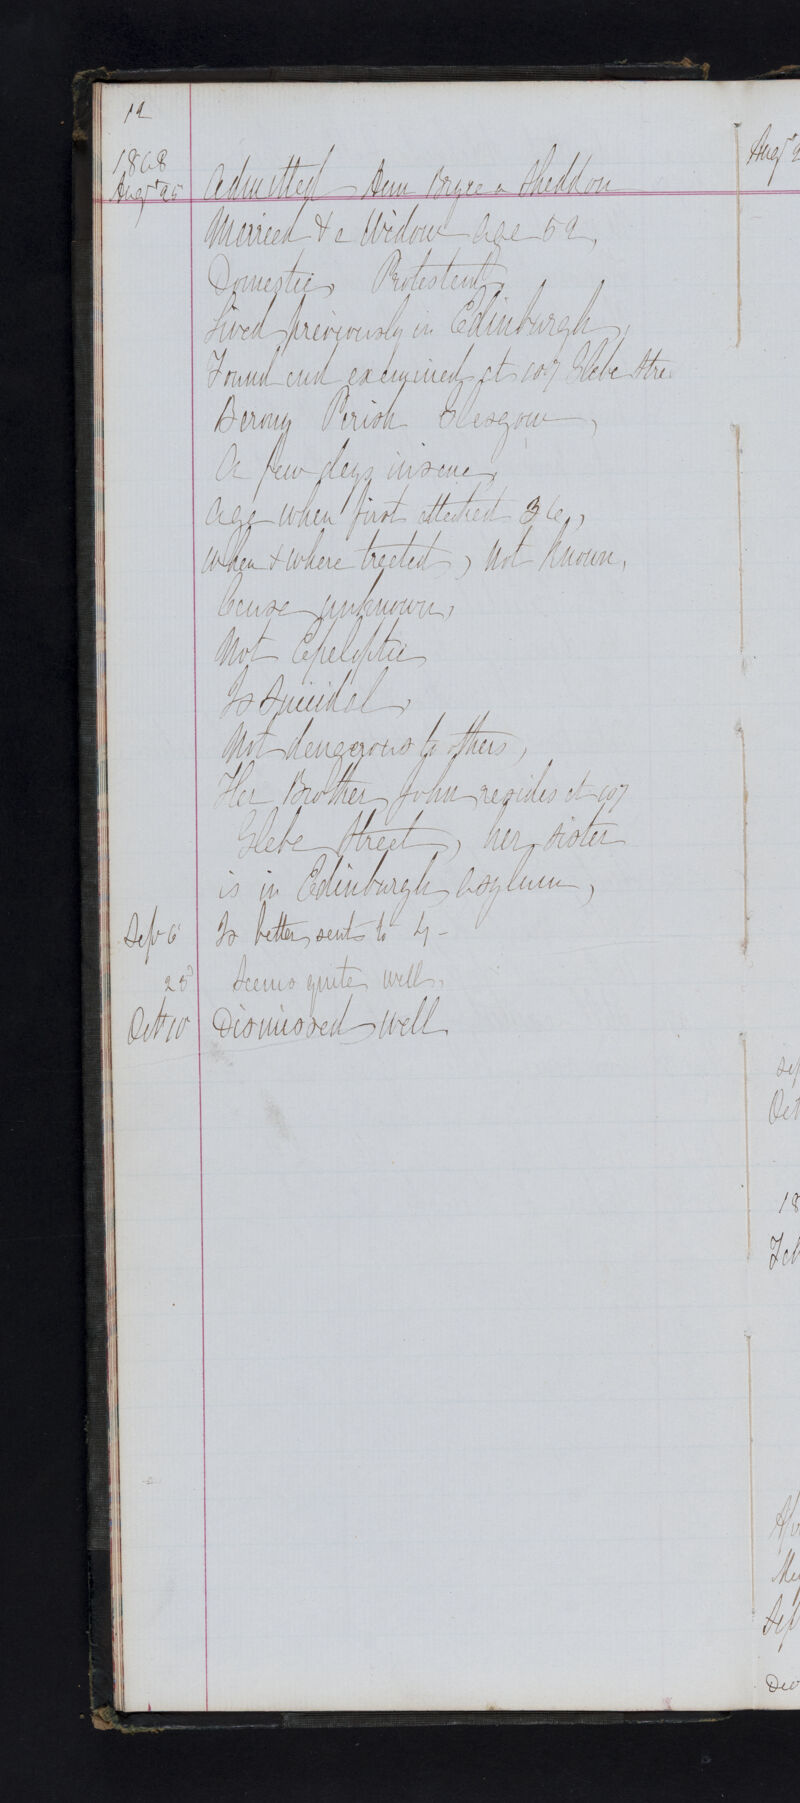 12
1868
Augt 25 Admitted Ann Bryce or Sheddon
Married & a Widow age 52,
Domestic, Protestant,
Lived previously in Edinburgh,
Found and examined at 107 Glebe Stre
Barony Parish Glasgow,
A few days insane,
Age when first attacked 36,
When & where treated, not known,
Cause unknown,
Not Epeleptic
Is Suicidal,
Not dangerous to others,
Her Brother John resides at 107
Glebe Street, her sister
is in Edinburgh Asylum,
Sep 6 Is better, sent to 4 -
25 Seems quite well,
Oct 10 Dismissed well
Augt 2
Sep
Oct
18
Feb
Apr
May
Sep
Dec